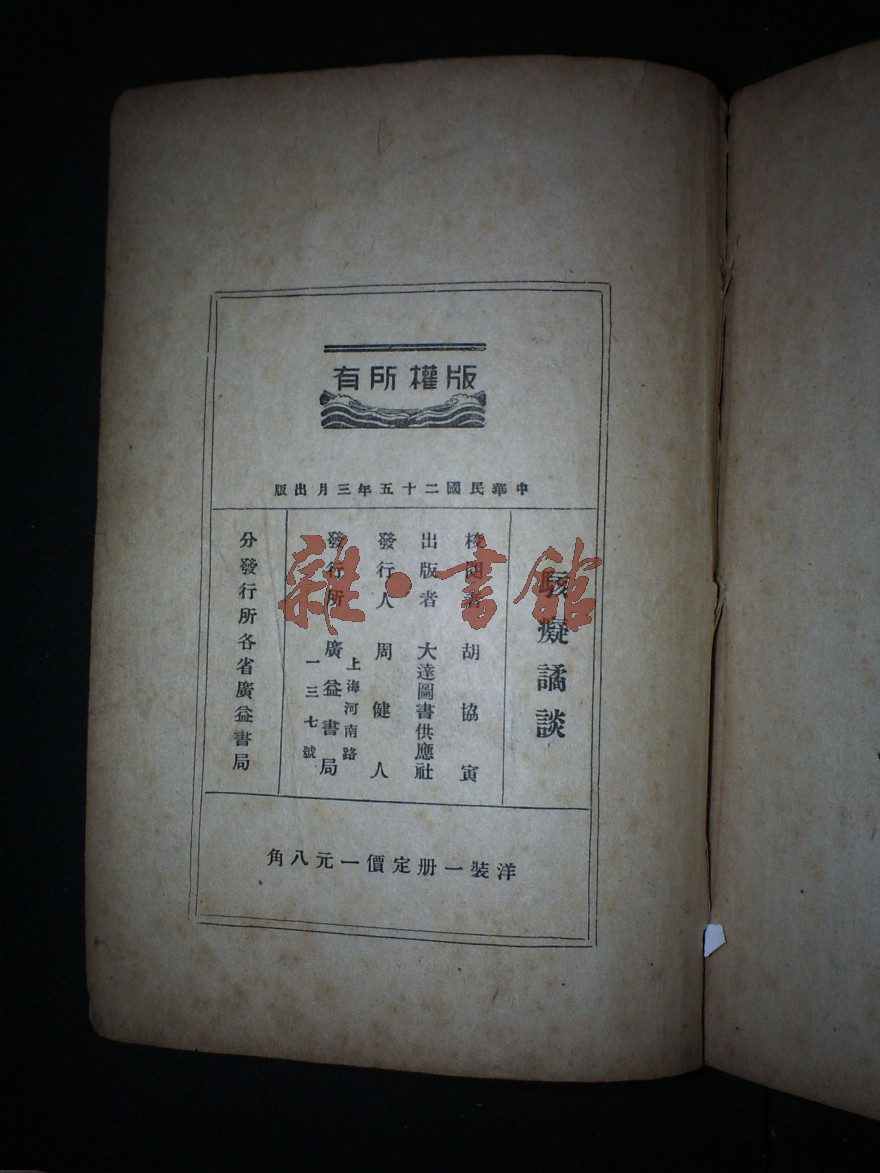 版權所有
中華民國二十五年三月出版
駭癡譎談
校閱者 胡協寅
出版者 大達圖書供應社
發行人 周健人
上海河南路
發行所 廣益書局
一三七號
分發行所各省廣益書局
洋裝一册定價一元八角
雜·書館